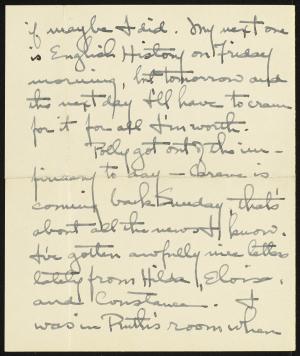 if maybe I did. My next one
is English History on Friday
morning, but tomorrow and
the next day I'll have to cram
for it for all I'm worth.
Polly got out of the in-
firmary to day - is
coming back Sunday, that's
about all the news I know.
I've gotten awfully nice letters
lately from Hilda, Eloise,
and Constance. I
was in Ruth's room when